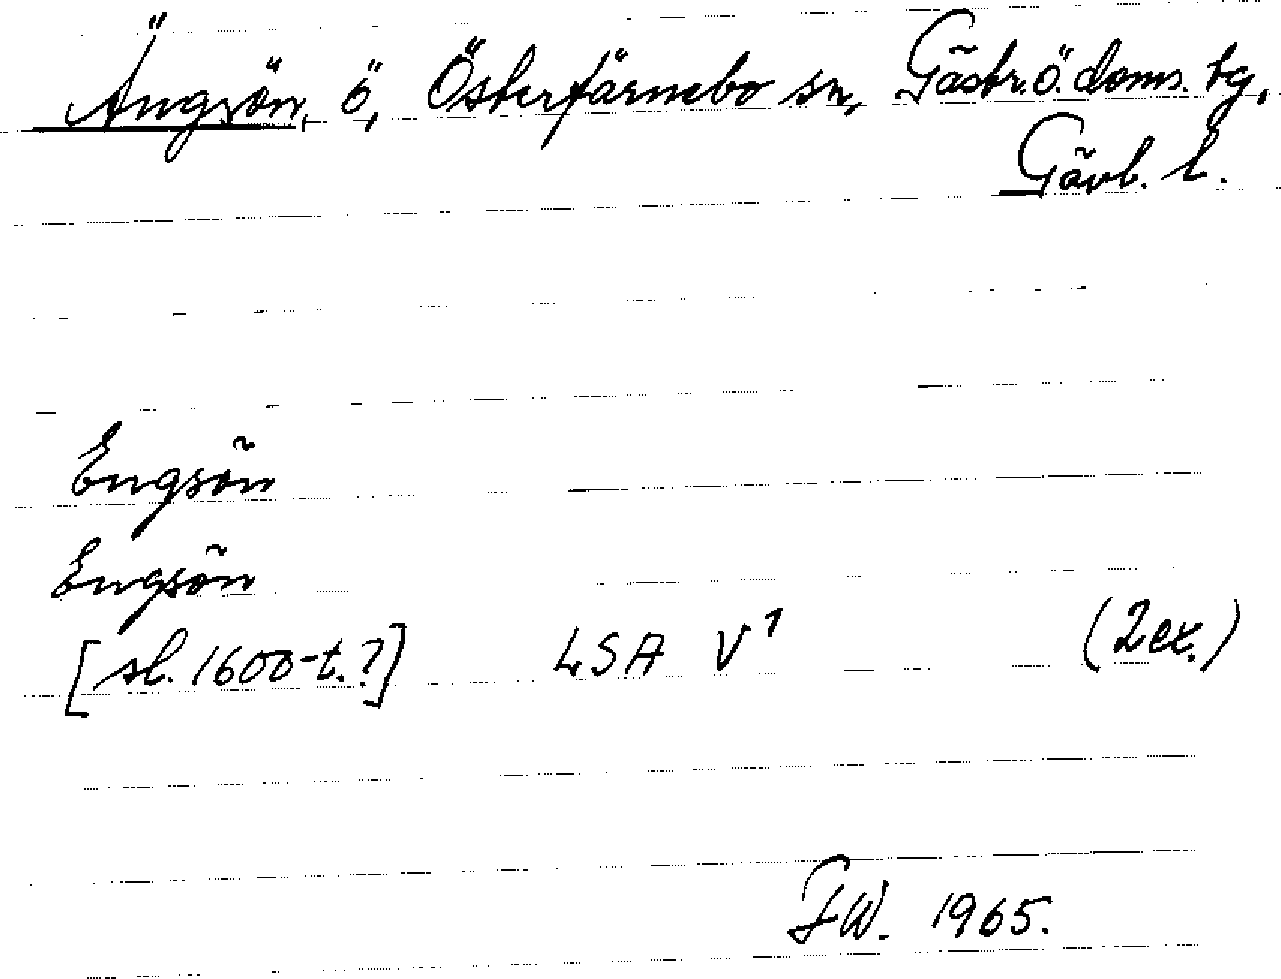 Ängsön, ö, Österfärnebo sn, Gästr. ö. doms. tg,
Gävl. l.
Engsön
Engsön
[sl. 1600-t.?] LSA V¹ (2 ex.)
F.W. 1965.